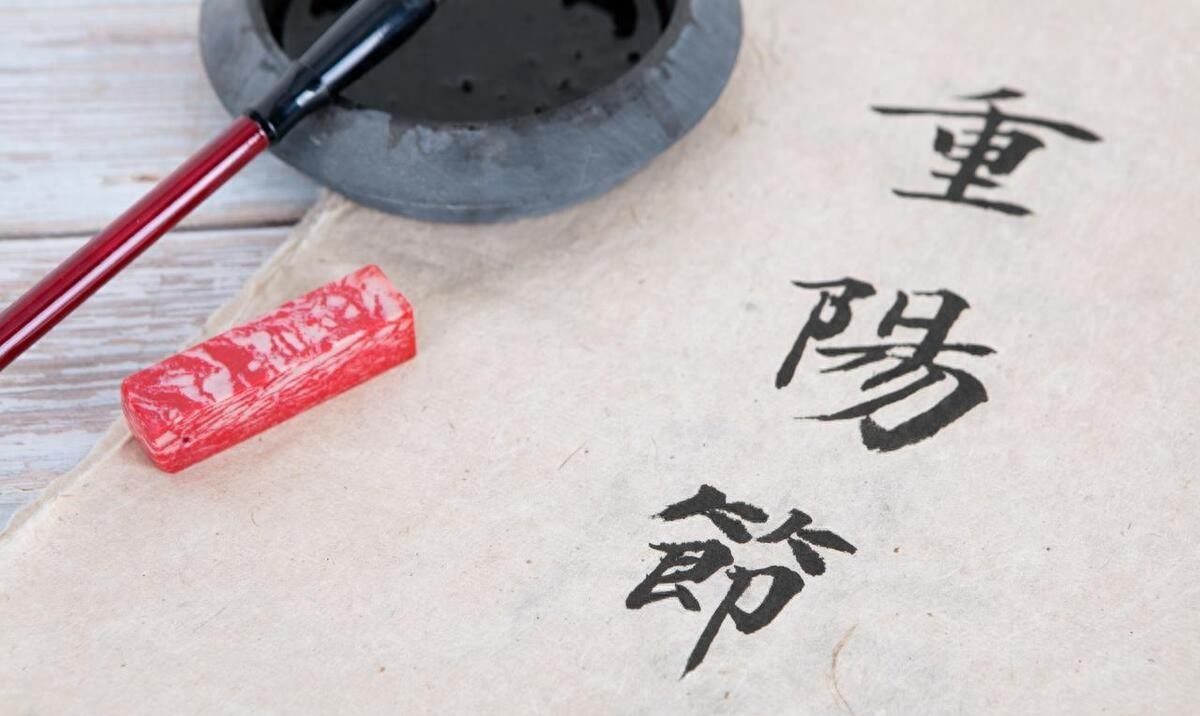 重陽節